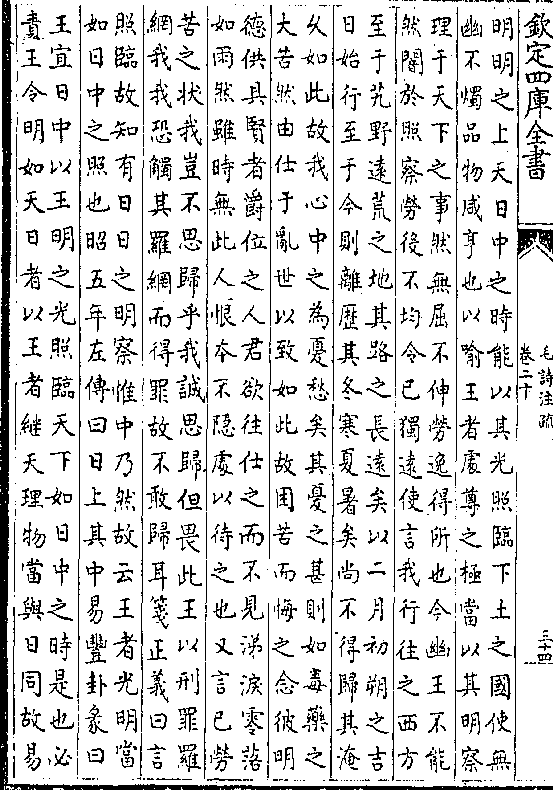 欽定四庫全書
毛詩注疏
卷二十
三十四
明明之上天日中之時能以其光照臨下土之國使無
幽不燭品物咸亨也以喻王者處尊之極當以其明察
理于天下之事然無屈不伸勞逸得所也今幽王不能
然闇於照察勞役不均令已獨遠使言我行往之西方
至于艽野遠荒之地其路之長遠矣以二月初朔之吉
日始行至于今則離歷其冬寒夏暑矣尚不得歸其淹
久如此故我心中之為憂愁矣其憂之甚則如毒藥之
大苦然由仕于亂世以致如此故困苦而悔之念彼明
德供具賢者爵位之人君欲往仕之而不見涕淚零落
如雨然雖時無此人恨本不隱處以待之也又言已勞
苦之狀我豈不思歸乎我誠思歸但畏此王以刑罪羅
網我我恐觸其羅網而得罪故不敢歸耳箋正義曰言
照臨故知有日日之明察惟中乃然故云王者光明當
如日中之照也昭五年左傳曰日上其中易豐卦彖曰
王宜日中以王明之光照臨天下如日中之時是也必
責王令明如天日者以王者繼天理物當與日同故易